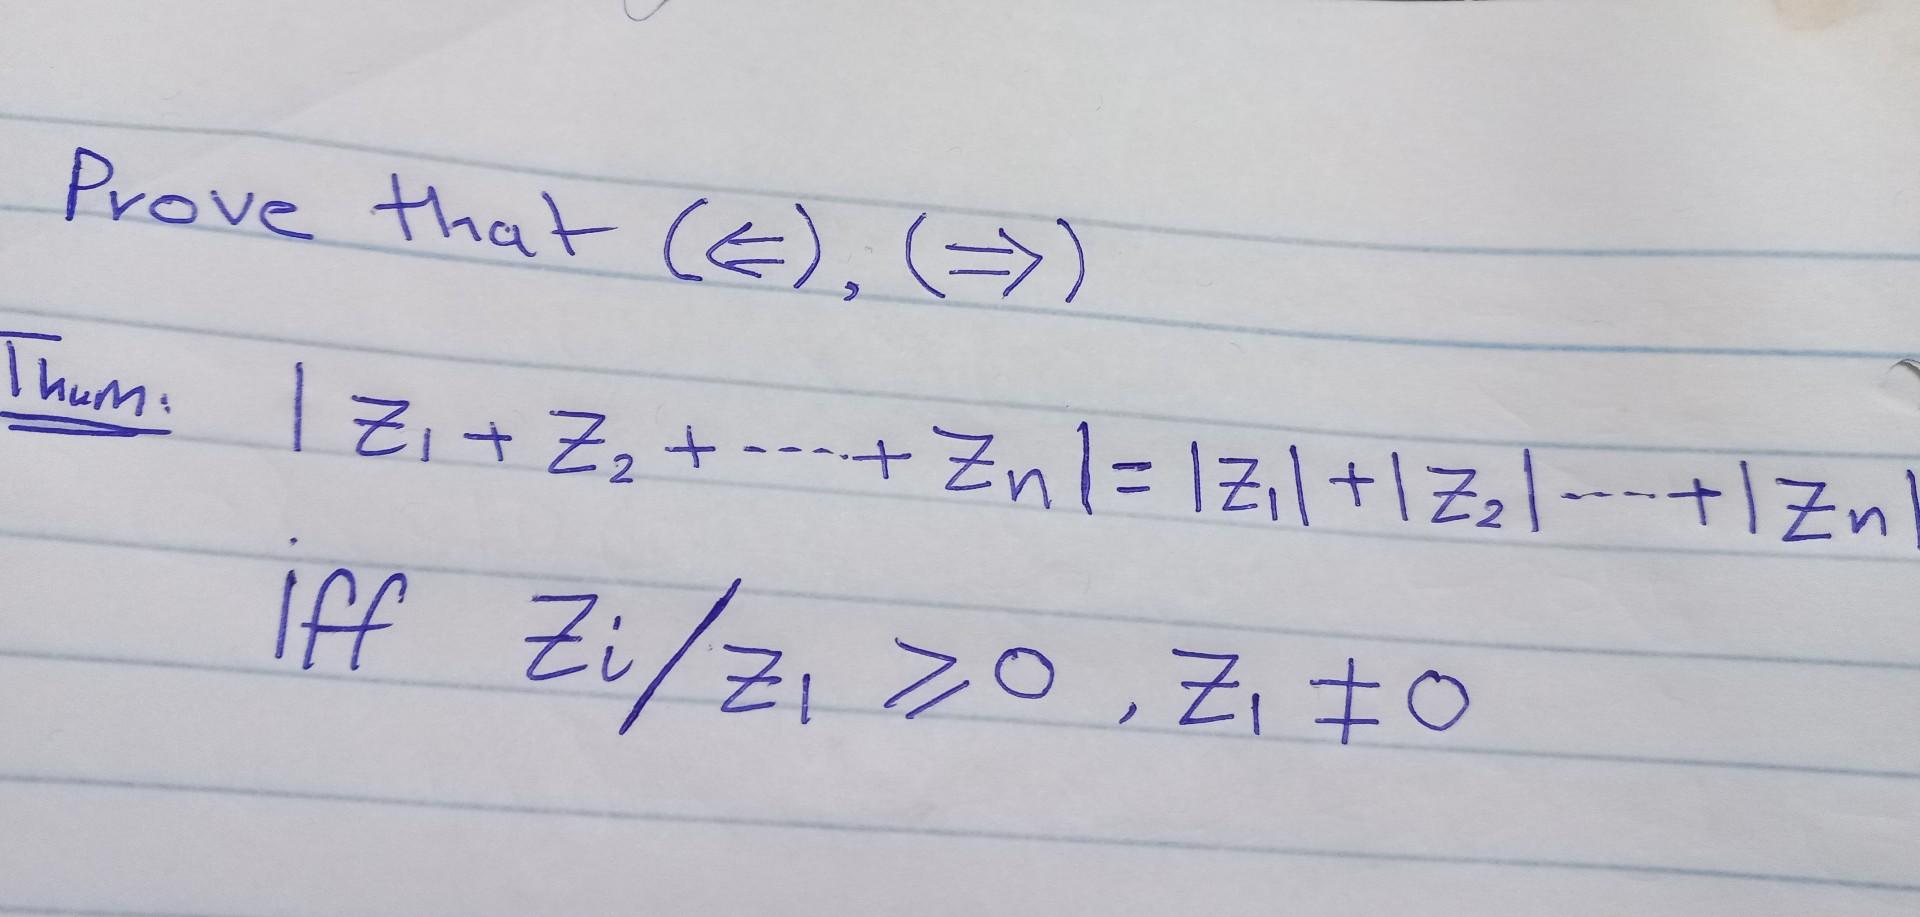 Prove that (⇐), (⇒)
Thum: |z₁ + z₂ + ----+ zₙ| = |z₁| + |z₂| ----+ |zₙ|
iff zi/z₁ ⩾ 0, z₁ ≠ 0